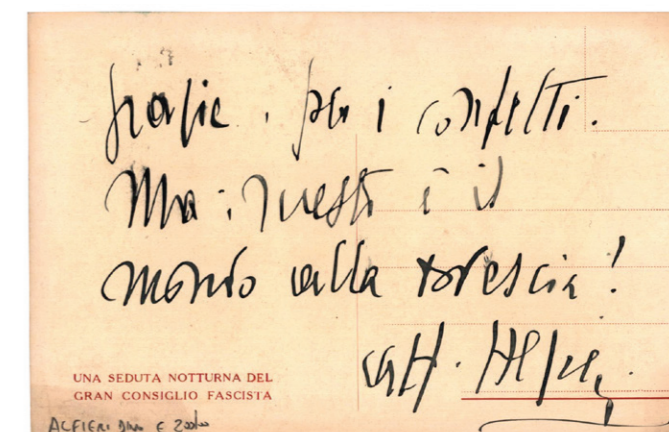 grazie. per i confetti.
Ma: questo è il
mondo alla rovescia!
UNA SEDUTA NOTTURNA DEL
GRAN CONSIGLIO FASCISTA
ALFIERI